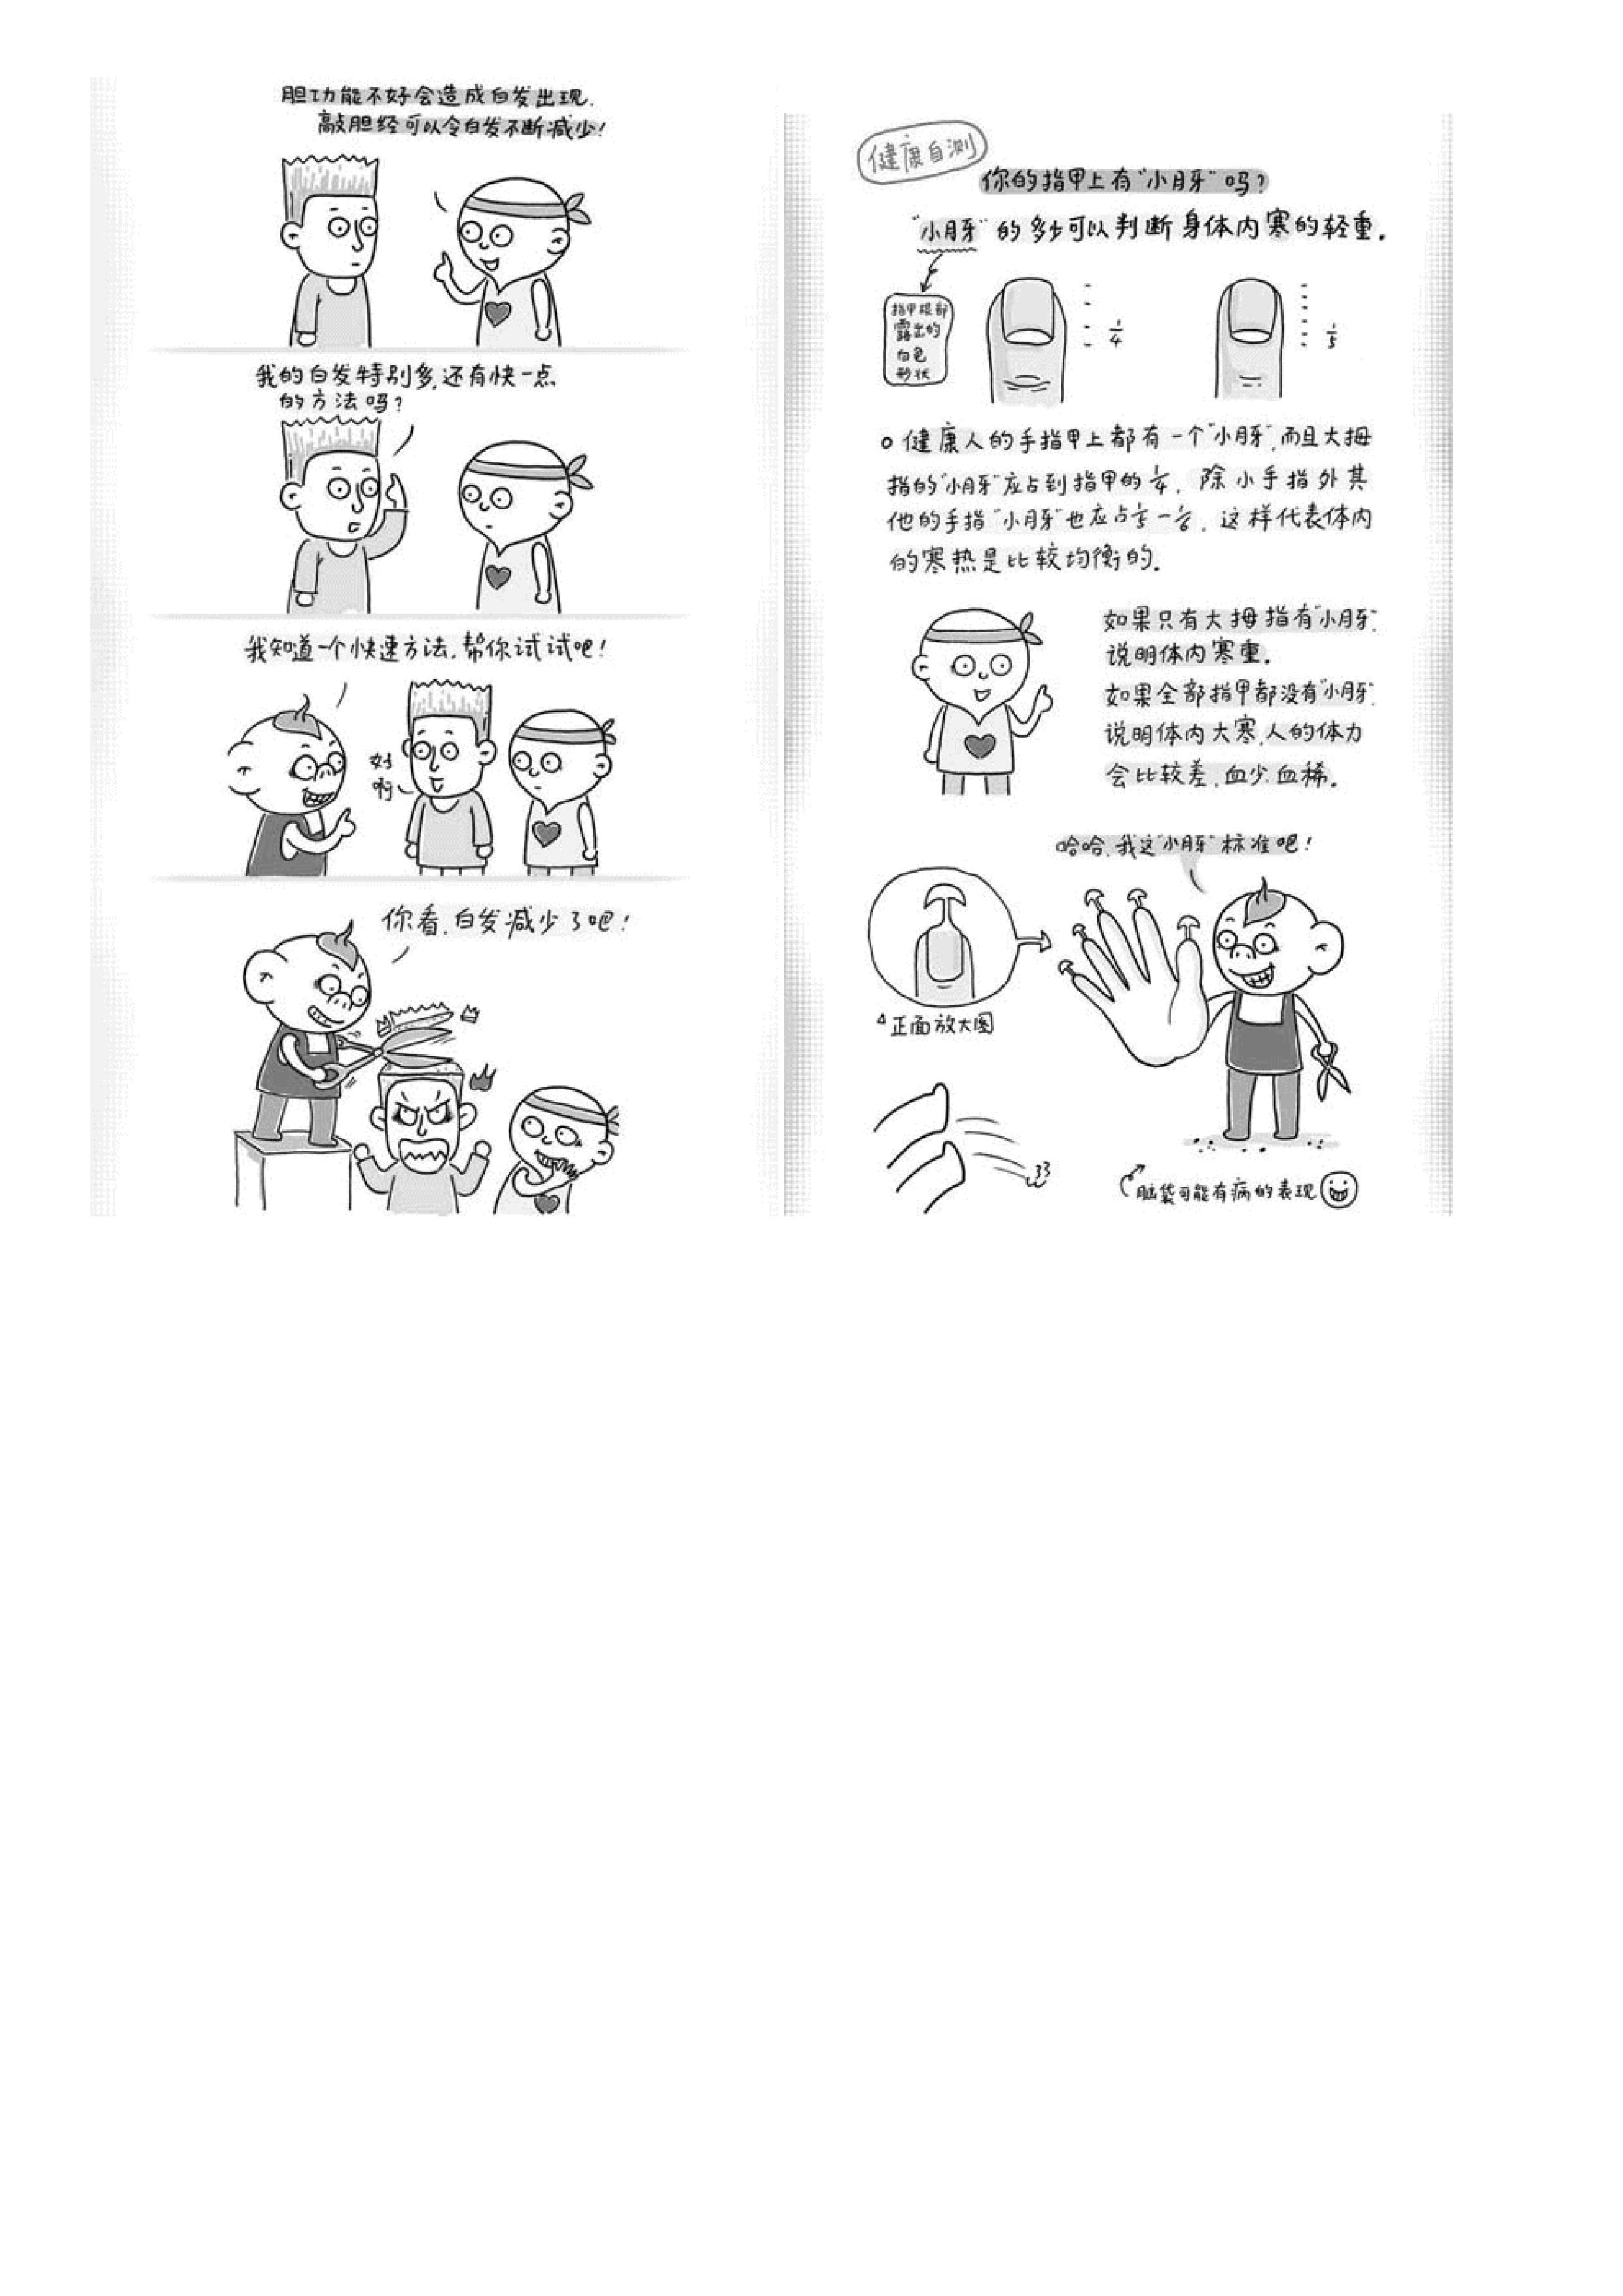 胆功能不好会造成白发出现.
敲胆经可以令白发不断减少!
我的白发特别多,还有快一点
的方法吗?
我知道一个快速方法,帮你试试吧!
好
啊
你看,白发减少了吧!
健康自测
你的指甲上有“小月牙”吗?
“小月牙”的多少可以判断身体内寒的轻重.
指甲根部
露出的
白色
形状
1/4
1/5
健康人的手指甲上都有一个“小月牙”,而且大拇
指的“小月牙”应占到指甲的
除小手指外其
他的手指“小月牙”也应占
这样代表体内
的寒热是比较均衡的.
如果只有大拇指有“小月牙”,
说明体内寒重.
如果全部指甲都没有“小月牙”,
说明体内大寒,人的体力
会比较差,血少血稀.
哈哈,我这“小月牙”标准吧!
正面放大图
脑袋可能有病的表现